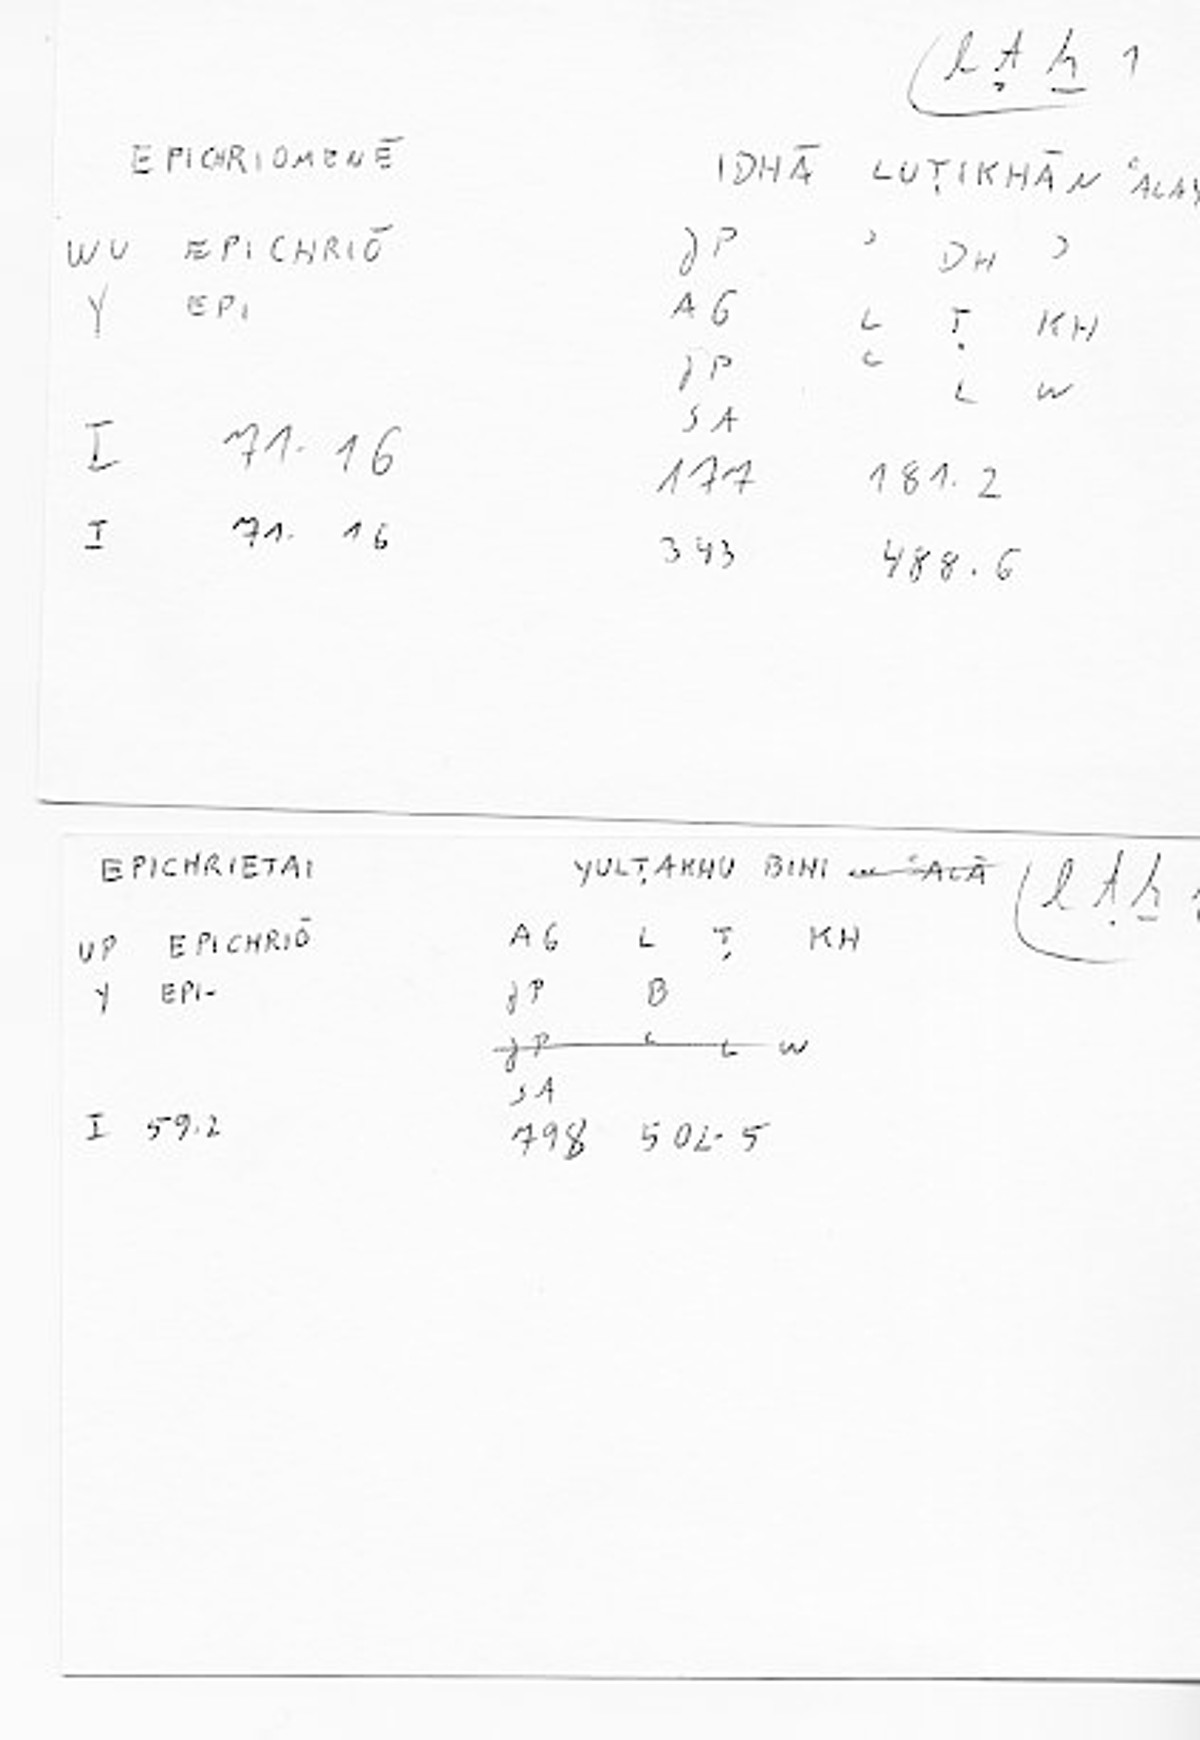 lṬḫ 1
EPICHRIOMENĒ IDHĀ LUṬIKHĀN ʿALAY
WU EPICHRIŌ JP ʾ DH ʾ
Y EPI AG L Ṭ KH
JP ʿ L W
SA
I 71.16 177 181.2
I 71.16 343 488.6
EPICHRIETAI YULṬAKHU BIHI ʿALĀ lṬḫ
UP EPICHRIŌ AG L Ṭ KH
Y EPI- JP B
JP ʿ L W
SA
I 59.2 798 502.5